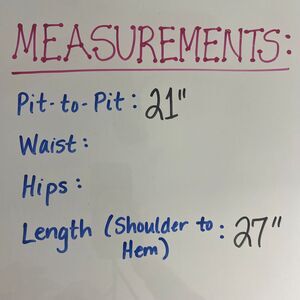 MEASUREMENTS:
Pit-to-Pit: 21"
Waist:
Hips:
Length (Shoulder to
Hem): 27"